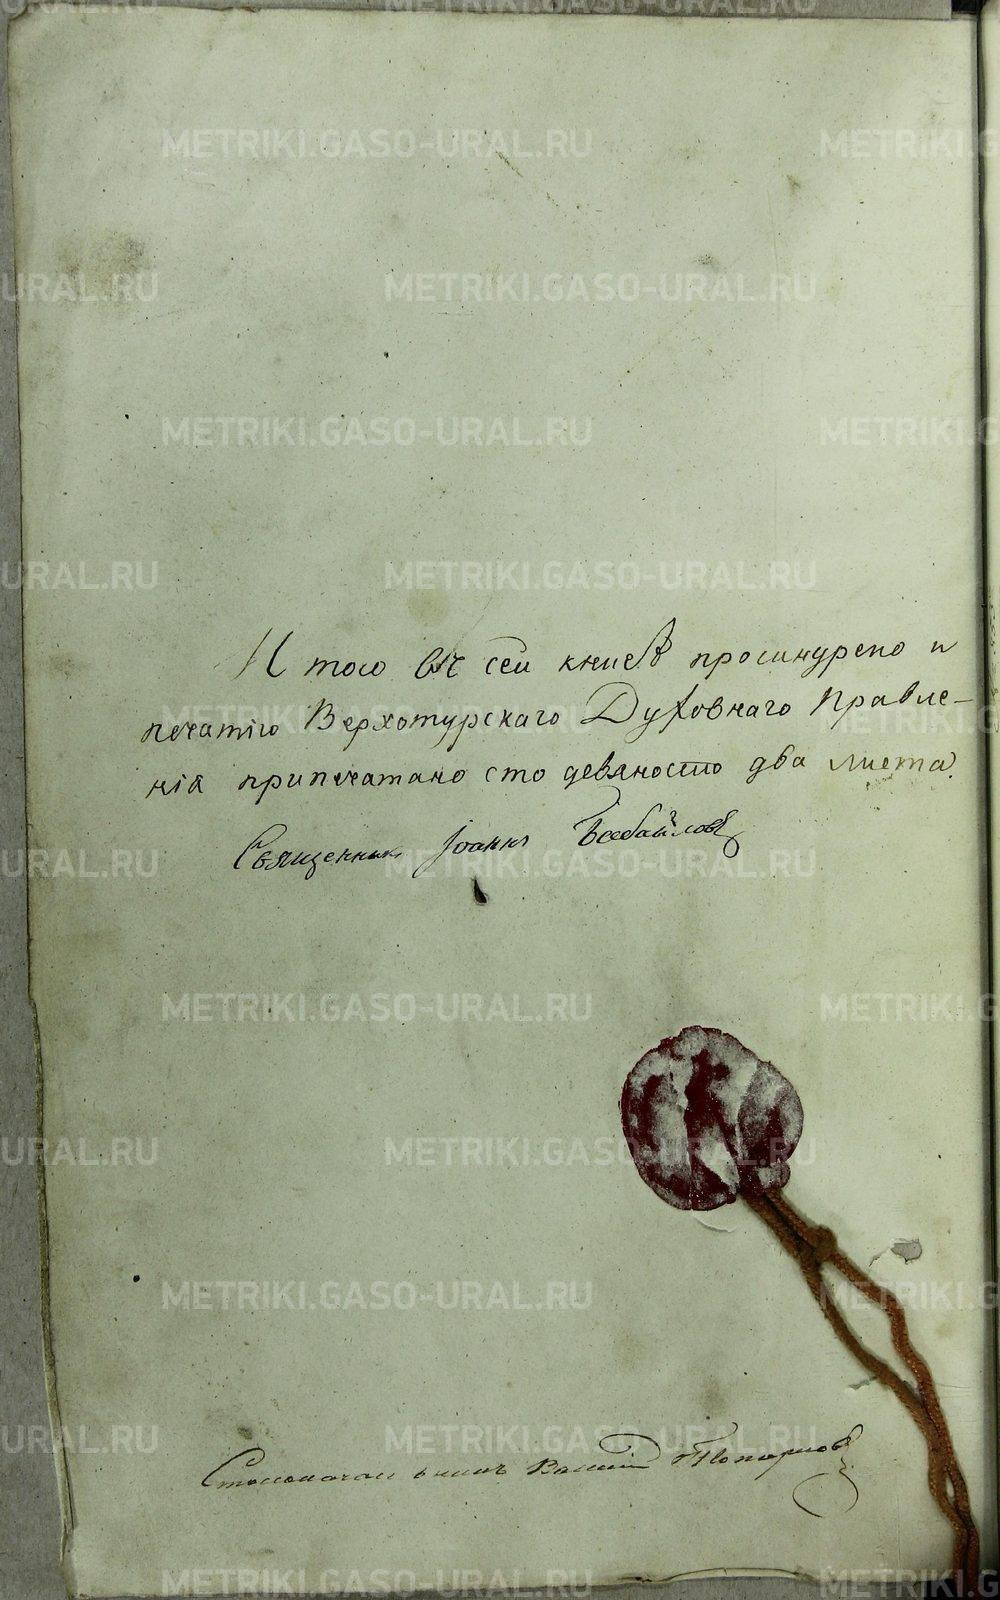 METRIKI.GASO-URAL.RU
И того въ сей книгѣ прошнурено и
печатію Верхотурскаго Духовнаго Правле-
нія припечатано сто девяносто два листа.
Священникъ Іоаннъ
Столоначальникъ Василій Топорковъ